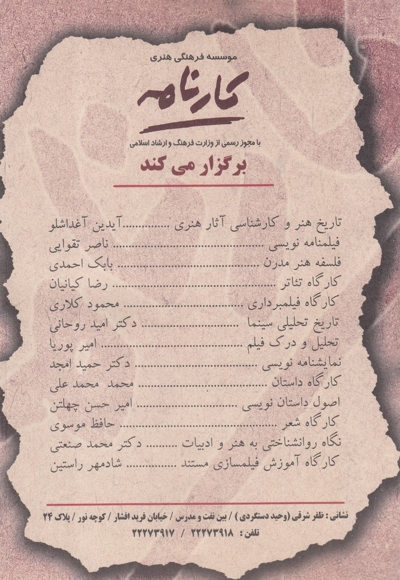 موسسه فرهنگی هنری
کارنامه
با مجوز رسمی از وزارت فرهنگ و ارشاد اسلامی
برگزار می کند
تاریخ هنر و کارشناسی آثار هنری ..............آیدین آغداشلو
فیلمنامه نویسی ............................................ ناصر تقوایی
فلسفه هنر مدرن ............................................ بابک احمدی
کارگاه تئاتر .................................................. رضا کیانیان
کارگاه فیلمبرداری ........................................ محمود کلاری
تاریخ تحلیلی سینما ............................ دکتر امید روحانی
تحلیل و درک فیلم ........................................... امیر پوریا
نمایشنامه نویسی .................................... دکتر حمید امجد
کارگاه داستان .......................... محمد محمدعلی
اصول داستان نویسی ........................... امیر حسن چهلتن
کارگاه شعر .............................................. حافظ موسوی
نگاه روانشناختی به هنر و ادبیات .......... دکتر محمد صنعتی
کارگاه آموزش فیلمسازی مستند ................. شادمهر راستین
نشانی : ظفر شرقی (وحید دستگردی ) / بین نفت و مدرس / خیابان فرید افشار / کوچه نور / پلاک ۲۴
تلفن : ۲۲۲۷۳۹۱۸ / ۲۲۲۷۳۹۱۷